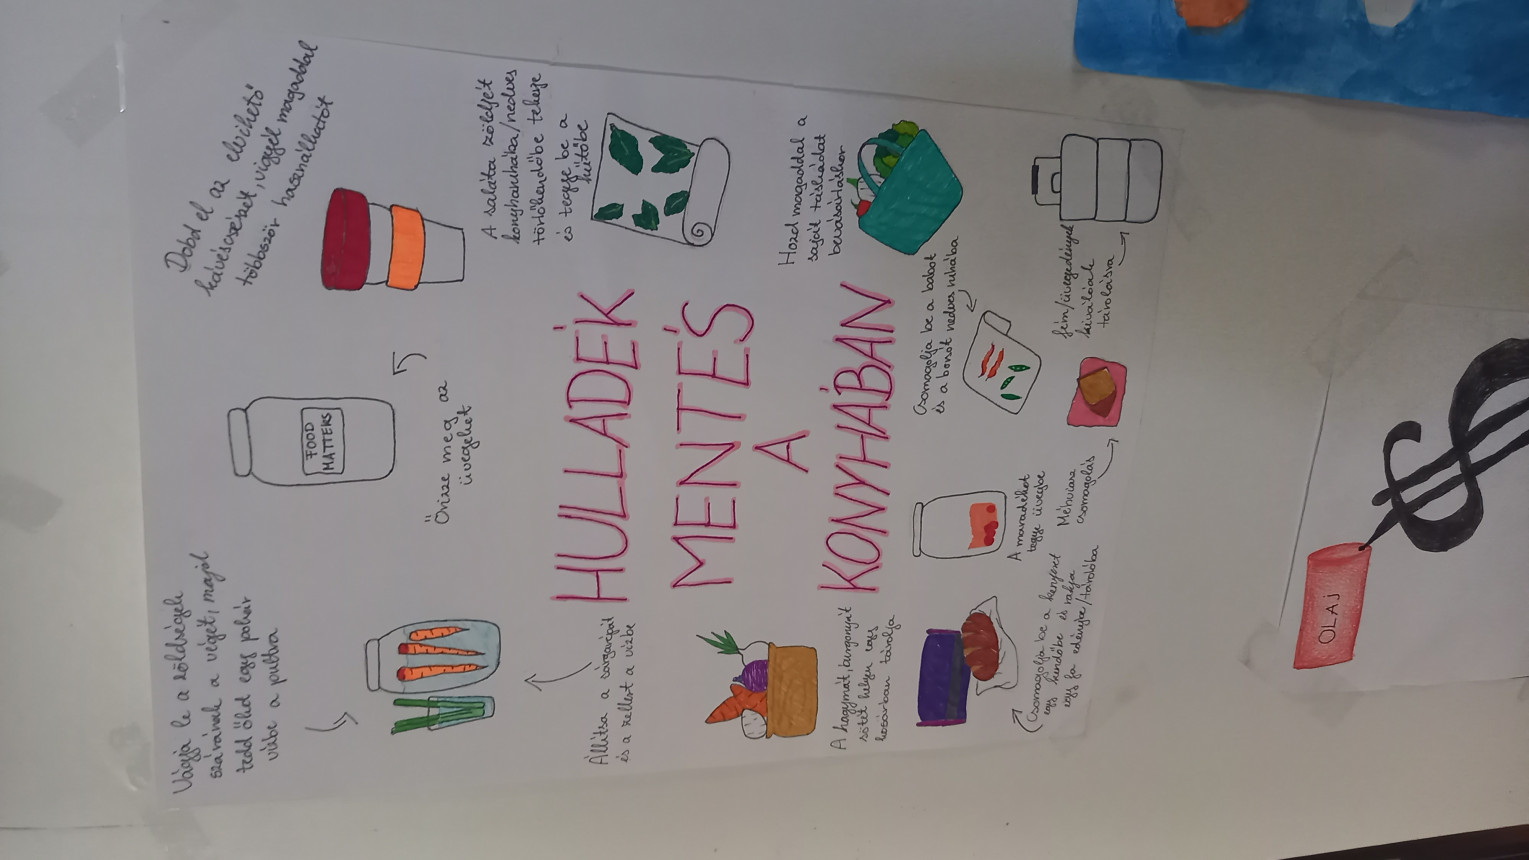 Vágja le a zöldségek
szárának a végét, majd
tedd őket egy pohár
vízbe a pultra
Őrizze meg az
üvegeket
FOOD
MATTERS
Dobd el az elvihető
kávéscsészét, vigyél magaddal
többször használhatót
A saláta zöldjét
konyharuhába/nedves
törlőkendőbe tekerje
és tegye be a
hűtőbe
Állítsa a sárgarépát
és a zellert a vízbe
HULLADÉK
MENTÉS
A
KONYHÁBAN
Hozd magaddal a
saját táskádat
bevásárláskor
A hagymát, burgonyát
sötét helyen egy
kosárban tárolja
Csomagolja be a babot
és a borsót nedves ruhába
A maradékot
tegye üvegbe
Méhviasz
csomagolás
fém/üvegedények
kiválóak
tárolásra
Csomagolja be a kenyeret
egy kendőbe és rakja
egy fa edénybe/tárolóba
OLAJ
$